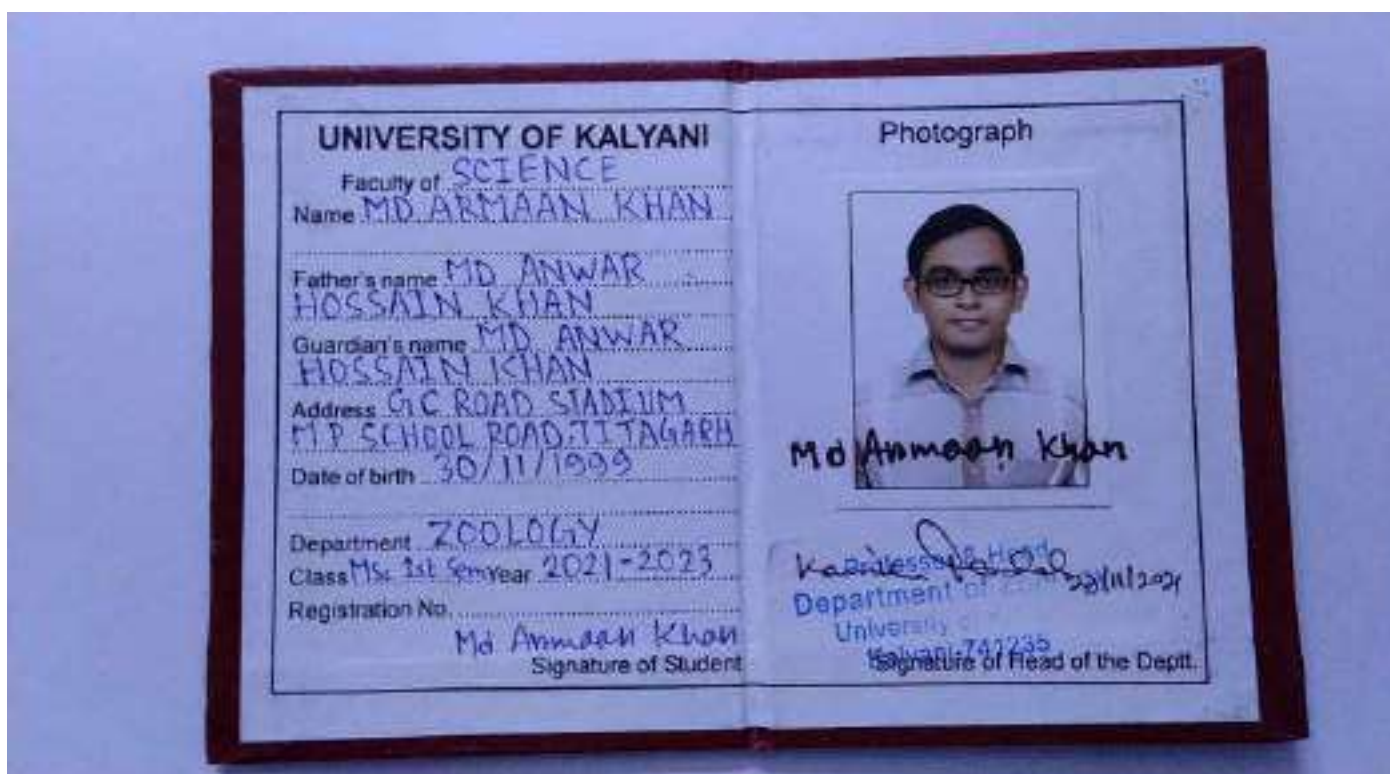 UNIVERSITY OF KALYANI
Faculty of SCIENCE
Name MD ARMAAN KHAN
Father's name MD ANWAR
HOSSAIN KHAN
Guardian's name MD ANWAR
HOSSAIN KHAN
Address G C ROAD STADIUM
M P SCHOOL ROAD, TITAGARH
Date of birth 30/11/1999
Department ZOOLOGY
Class MSc 1st Sem Year 2021-2023
Registration No.
Md Armaan Khan
Signature of Student
Photograph
Md Armaan Khan
Professor & Head
23/11/2021
Department of
University
Kalyani-741235
Signature of Head of the Deptt.